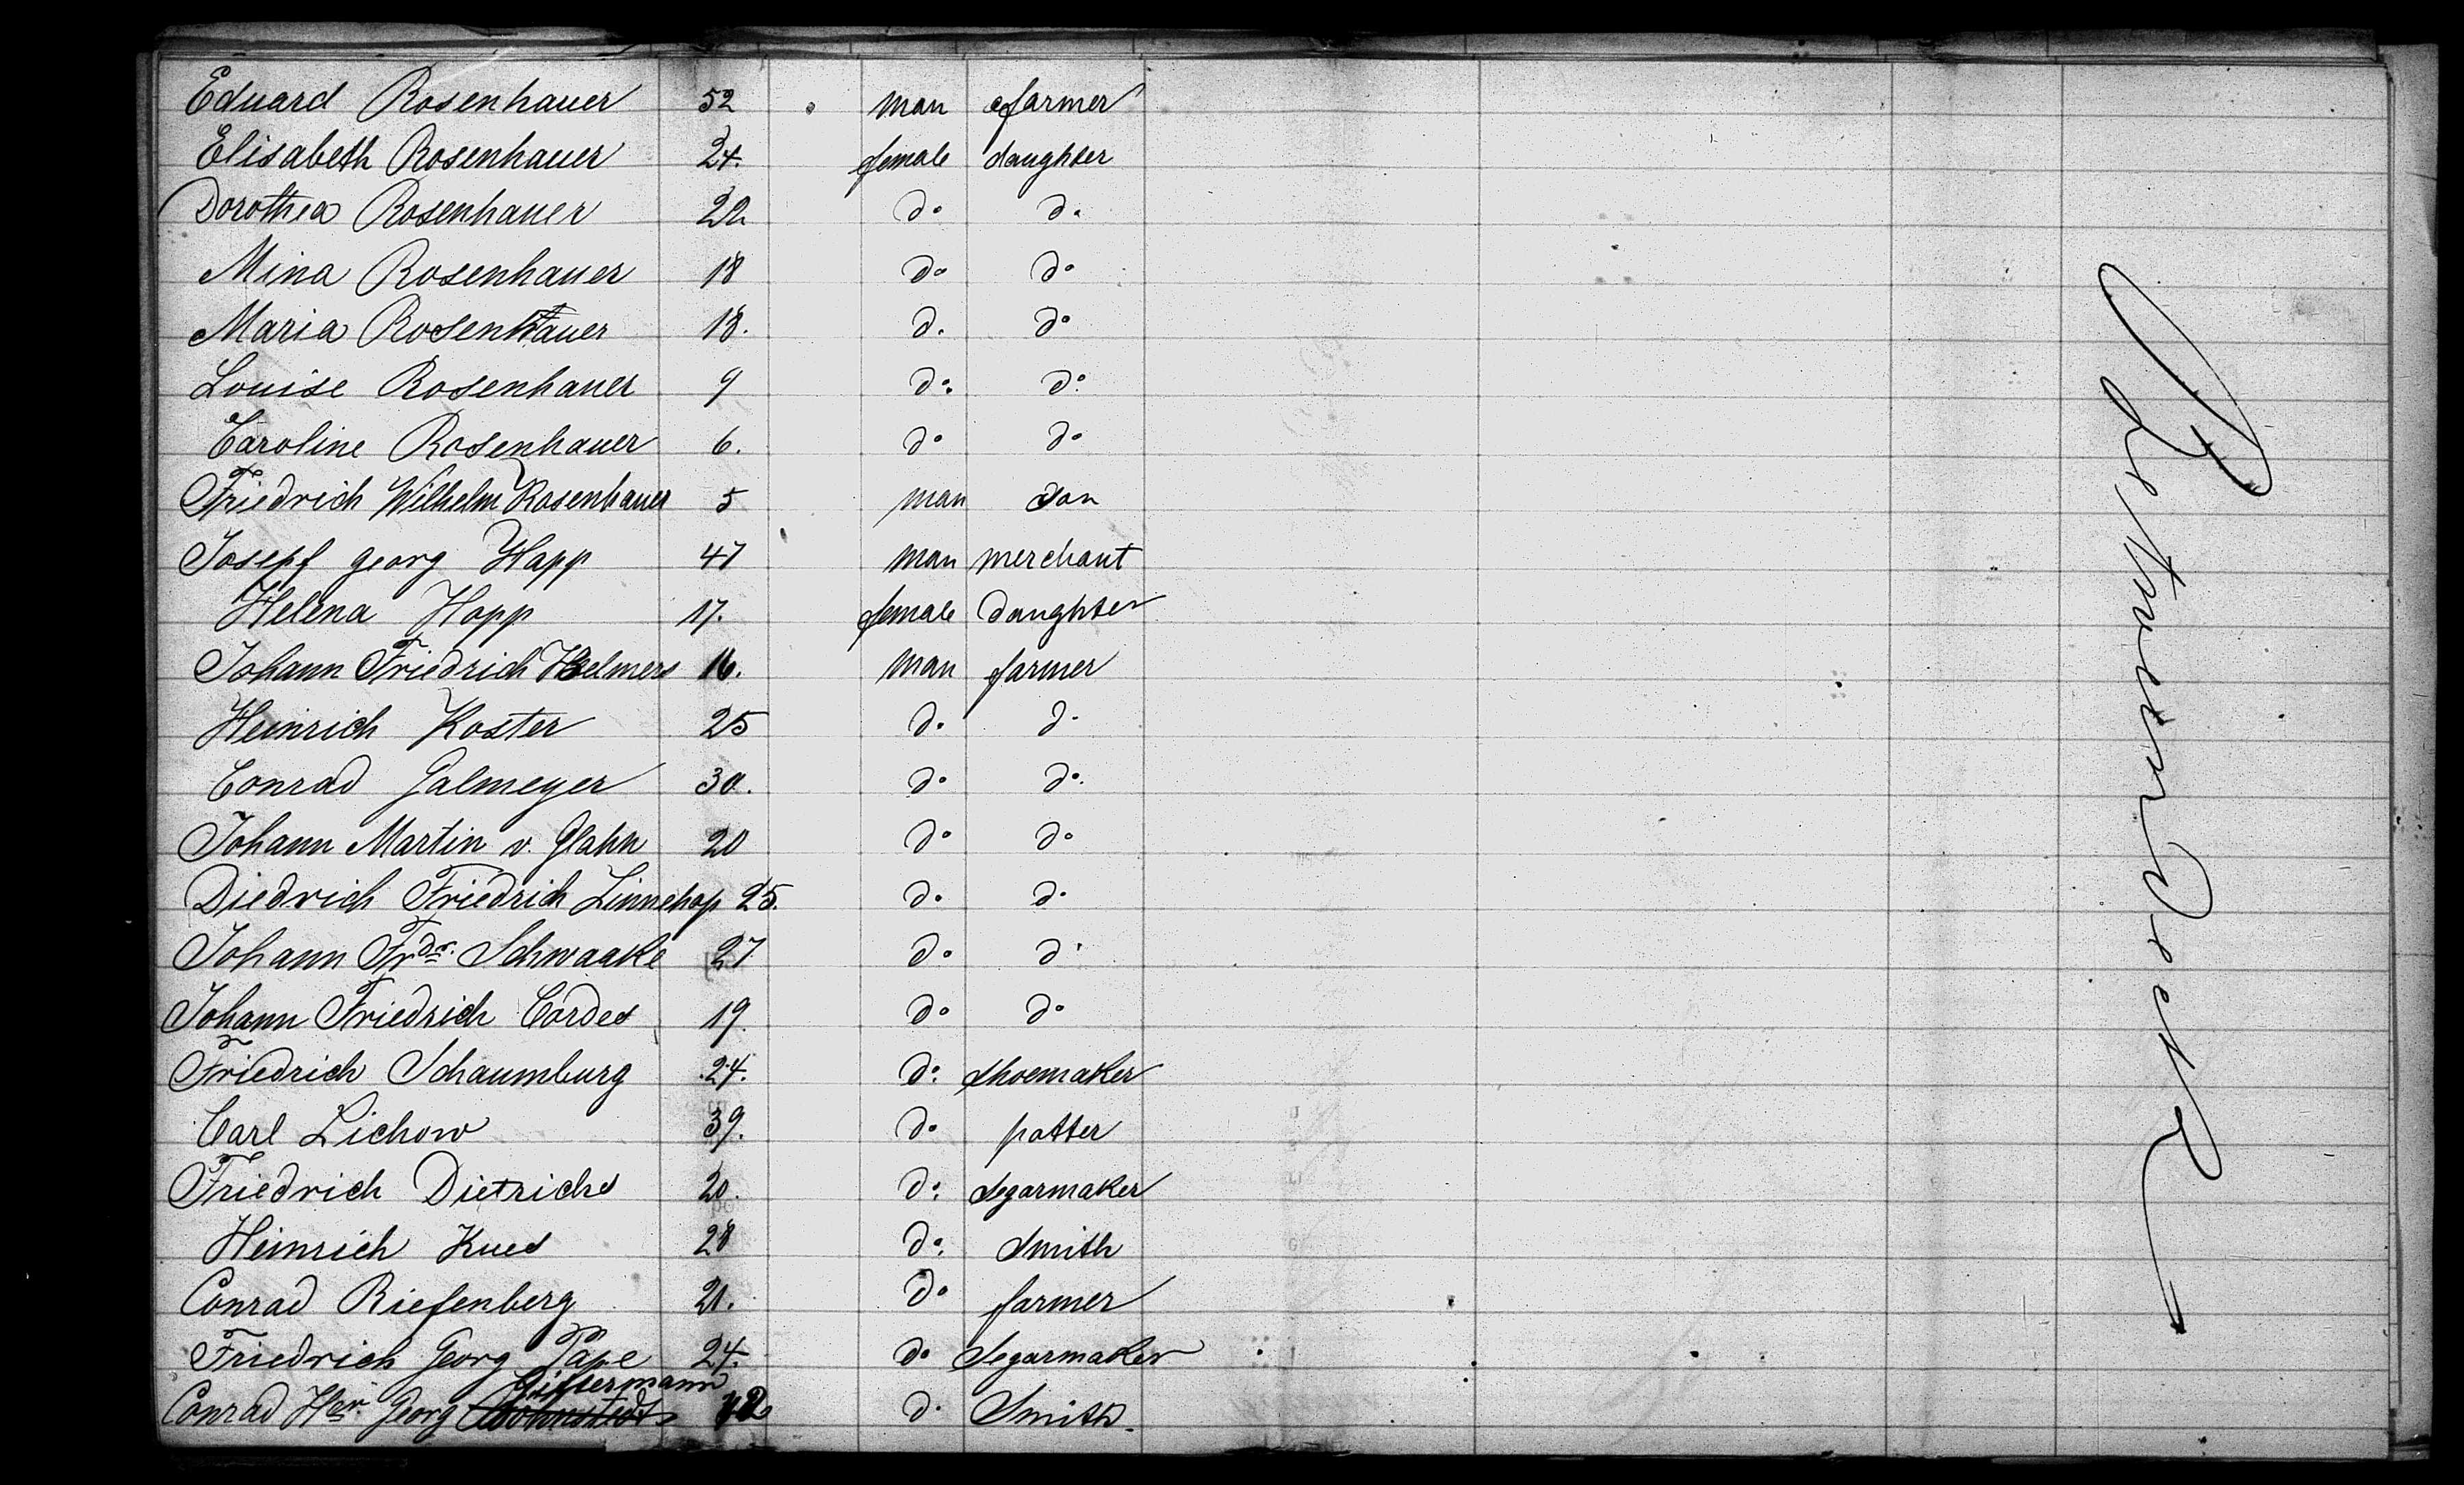 Eduard Rosenhauer 52 man farmer
Elisabeth Rosenhauer 24. female daughter
Dorothea Rosenhauer 22 do do
Mina Rosenhauer 18 do do
Maria Rosenhauer 18. do do
Louise Rosenhauer 9 do do
Caroline Rosenhauer 6. do do
Friedrich Wilhelm Rosenhauer 5 man son
Josepf georg Happ 47 man merchant
Helena Hopp 17. female daughter
Johann Friedrich Helmers 16. man farmer
Heinrich Koster 25 do do
Conrad Galmeyer 30. do do
Johann Martin v. Glahn 20 do do
Diedrich Friedrich Linnehop 25. do do
Johann Frdr. Schwaake 27 do do
Johann Friedrich Cordes 19. do do
Friedrich Schaumburg 24. do shoemaker
Carl Lichow 39. do potter
Friedrich Dietrichs 20. do Segarmaker
Heinrich Kues 28 do Smith
Conrad Riefenberg 21. do farmer
Friedrich Georg Pape 24. do Segarmaker
Conrad Hnr. Georg do Smith.